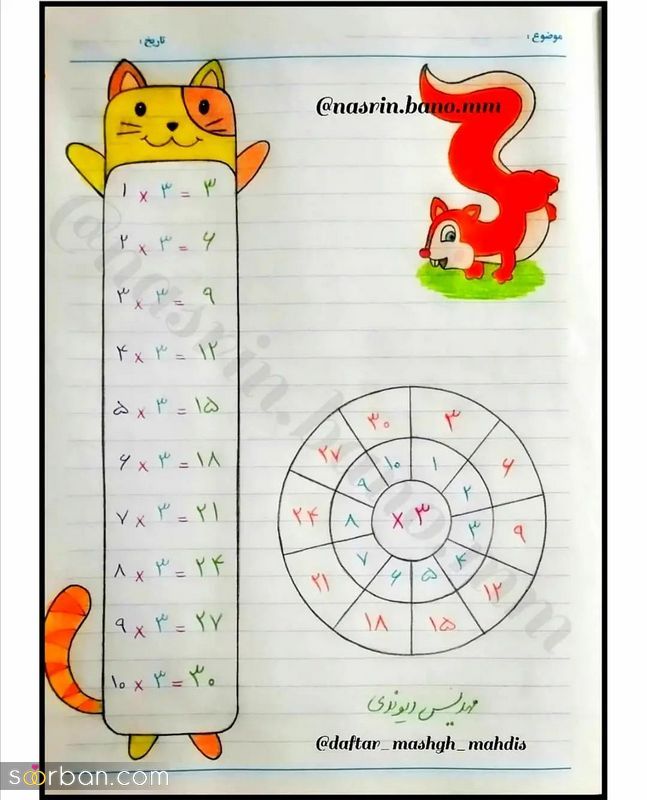 موضوع :
تاریخ :
@nasrin.bano.mm
۱ × ۳ = ۳
۲ × ۳ = ۶
۳ × ۳ = ۹
۴ × ۳ = ۱۲
۵ × ۳ = ۱۵
۶ × ۳ = ۱۸
۷ × ۳ = ۲۱
۸ × ۳ = ۲۴
۹ × ۳ = ۲۷
۱۰ × ۳ = ۳۰
@nasrin.bano.mm
× ۳
۱ ۲ ۳ ۴ ۵ ۶ ۷ ۸ ۹ ۱۰
۳ ۶ ۹ ۱۲ ۱۵ ۱۸ ۲۱ ۲۴ ۲۷ ۳۰
مهدیس دیوندی
@daftar_mashgh_mahdis
soorban.com